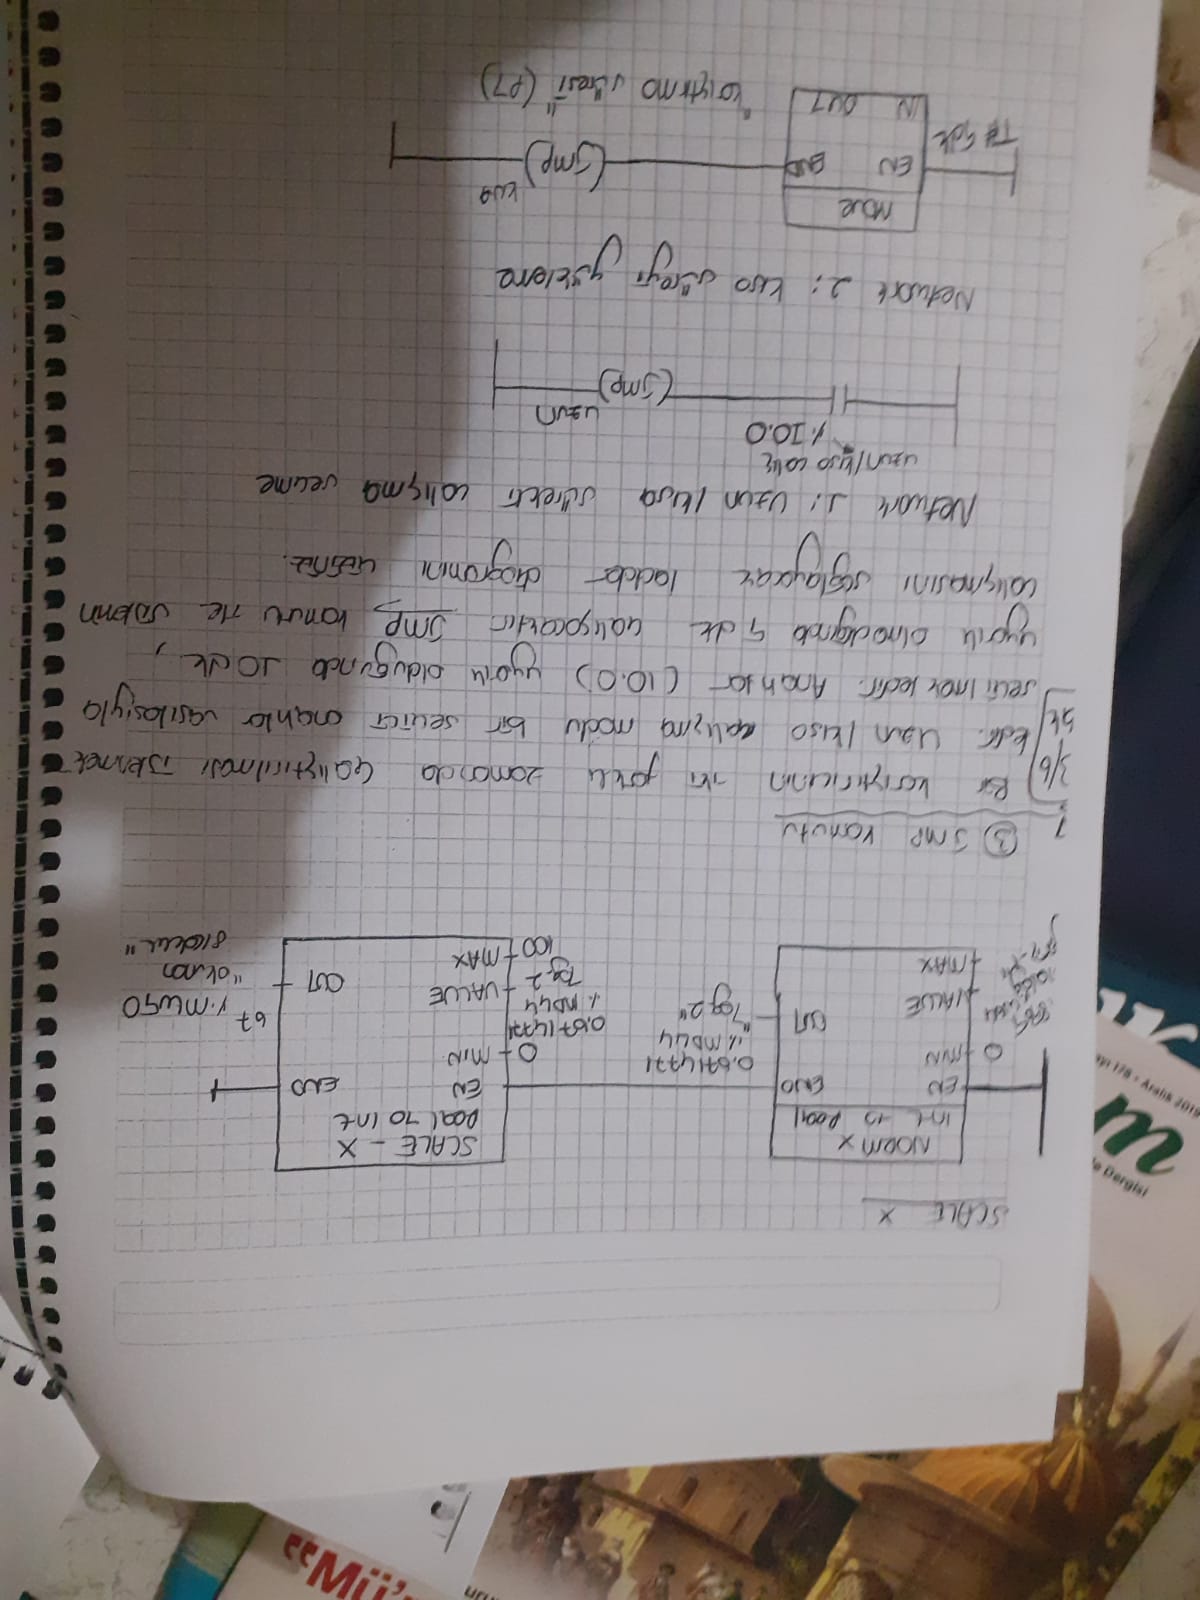 "Mü
m
te Dergisi
SCALE X
NORM X
Int to Real
EN ENO
0 MIN
OUT
VALUE
MAX
0.6714771
% MD44
"Tag 2"
SCALE - X
Real To Int
EN ENO
0 MIN
0.6714771
% MD44
Tag-2 VALUE
100 MAX
OUT
67 % MW50
"okunan
sıcaklık"
③ JMP komutu
3/6
Bir karıştırıcının iki farklı zamanda çalıştırılması istenmek-
tedir. Uzun/kısa çalışma modu bir seçici anahtar vasıtasıyla
seçilmektedir. Anahtar (I0.0) uyarılı olduğunda 10 dk,
uyarılı olmadığında 5 dk çalışacaktır. JMP komutu ile sistemin
çalışmasını sağlayacak ladder diagramını çiziniz.
Network 1: Uzun/kısa süreli çalışma seçme
uzun/kısa çalış
% I0.0
uzun
(Jmp)
Network 2: Kısa süreyi yükleme
Move
EN ENO
kısa
(Jmp)
T# 5dk
IN OUT
"karıştırma süresi" (PT)